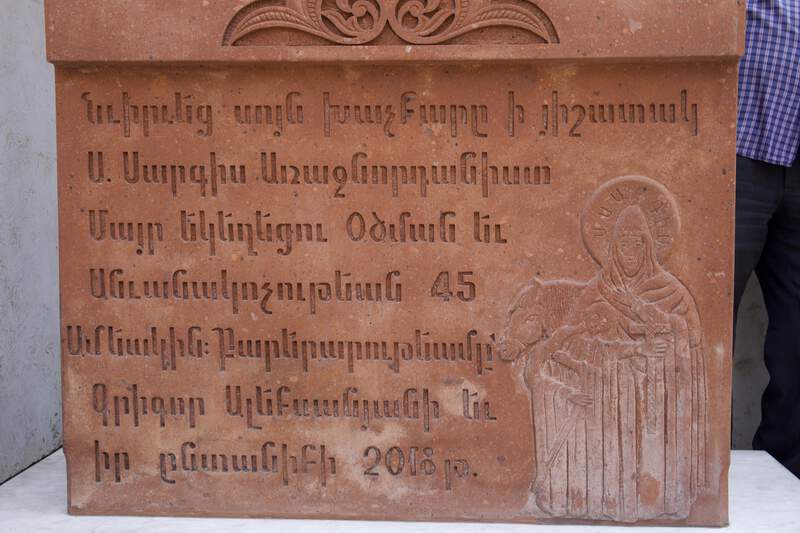 Նւիրւեց սոյն խաչքարը ի յիշատակ
Ս. Սարգիս Առաջնորդանիստ
Մայր եկեղեցու Օծման եւ
Անւանակոչութեան 45
Ամեակին: Բարերարութեամբ՝
Գրիգոր Ալեքսանեանի եւ
իր ընտանիքի 2018 թ.